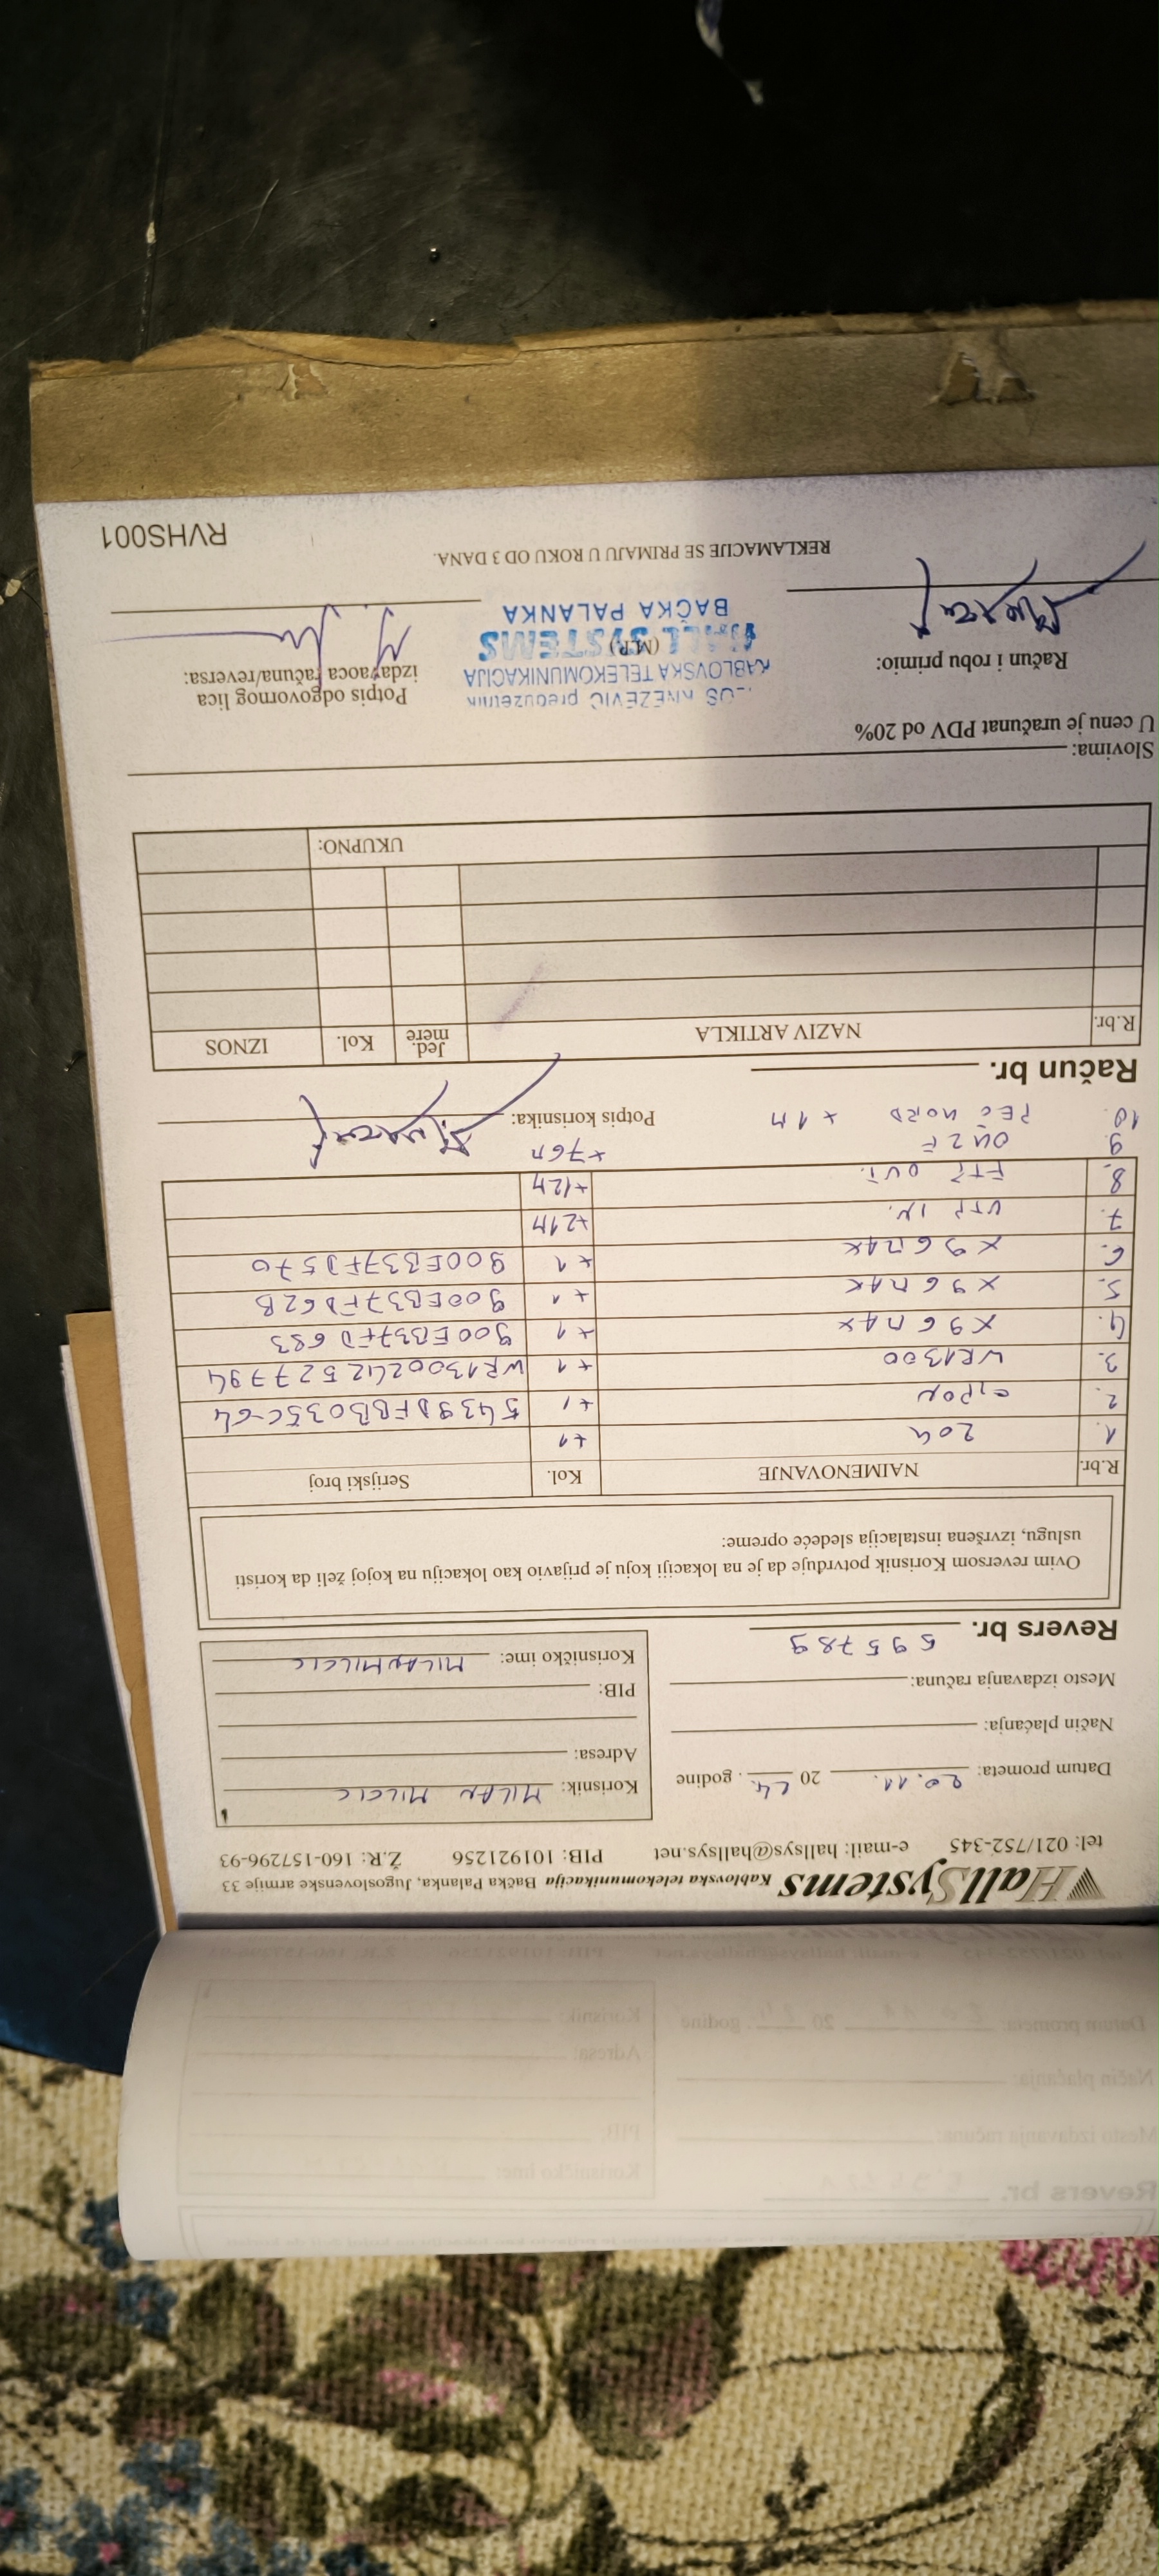 HallSystems Kablovska telekomunikacija Bačka Palanka, Jugoslovenske armije 33
tel: 021/752-345 e-mail: hallsys@hallsys.net PIB: 101921256 Ž.R: 160-157296-93
Datum prometa: 20.11. 20 24. godine
Način plaćanja:
Mesto izdavanja računa:
Revers br. 695789
Korisnik: MILAN MILCIC
Adresa:
PIB:
Korisničko ime: MILANMILCIC
Ovim reversom Korisnik potvrđuje da je na lokaciji koju je prijavio kao lokaciju na kojoj želi da koristi
uslugu, izvršena instalacija sledeće opreme:
R.br. NAIMENOVANJE Kol. Serijski broj
1. 204 +1
2. +1 5439DFBB035C-64
3. WR1300 +1 WR1300242527794
4. X96MAX +1 900EB37FD683
5. X96MAX +1 900EB37FD62B
6. X96MAX +1 900EB37FD570
7. UTP IN. +21M
8. FTP OUT. +12M
9. +76M
10. PEC NORD +1M
Potpis korisnika:
Račun br.
R.br. NAZIV ARTIKLA Jed. mere Kol. IZNOS
UKUPNO:
Slovima:
U cenu je uračunat PDV od 20%
Račun i robu primio:
KNEŽEVIĆ preduzetnik
KABLOVSKA TELEKOMUNIKACIJA
HALL SYSTEMS
(M.P.)
BAČKA PALANKA
Potpis odgovornog lica
izdavaoca računa/reversa:
REKLAMACIJE SE PRIMAJU U ROKU OD 3 DANA.
RVHS001